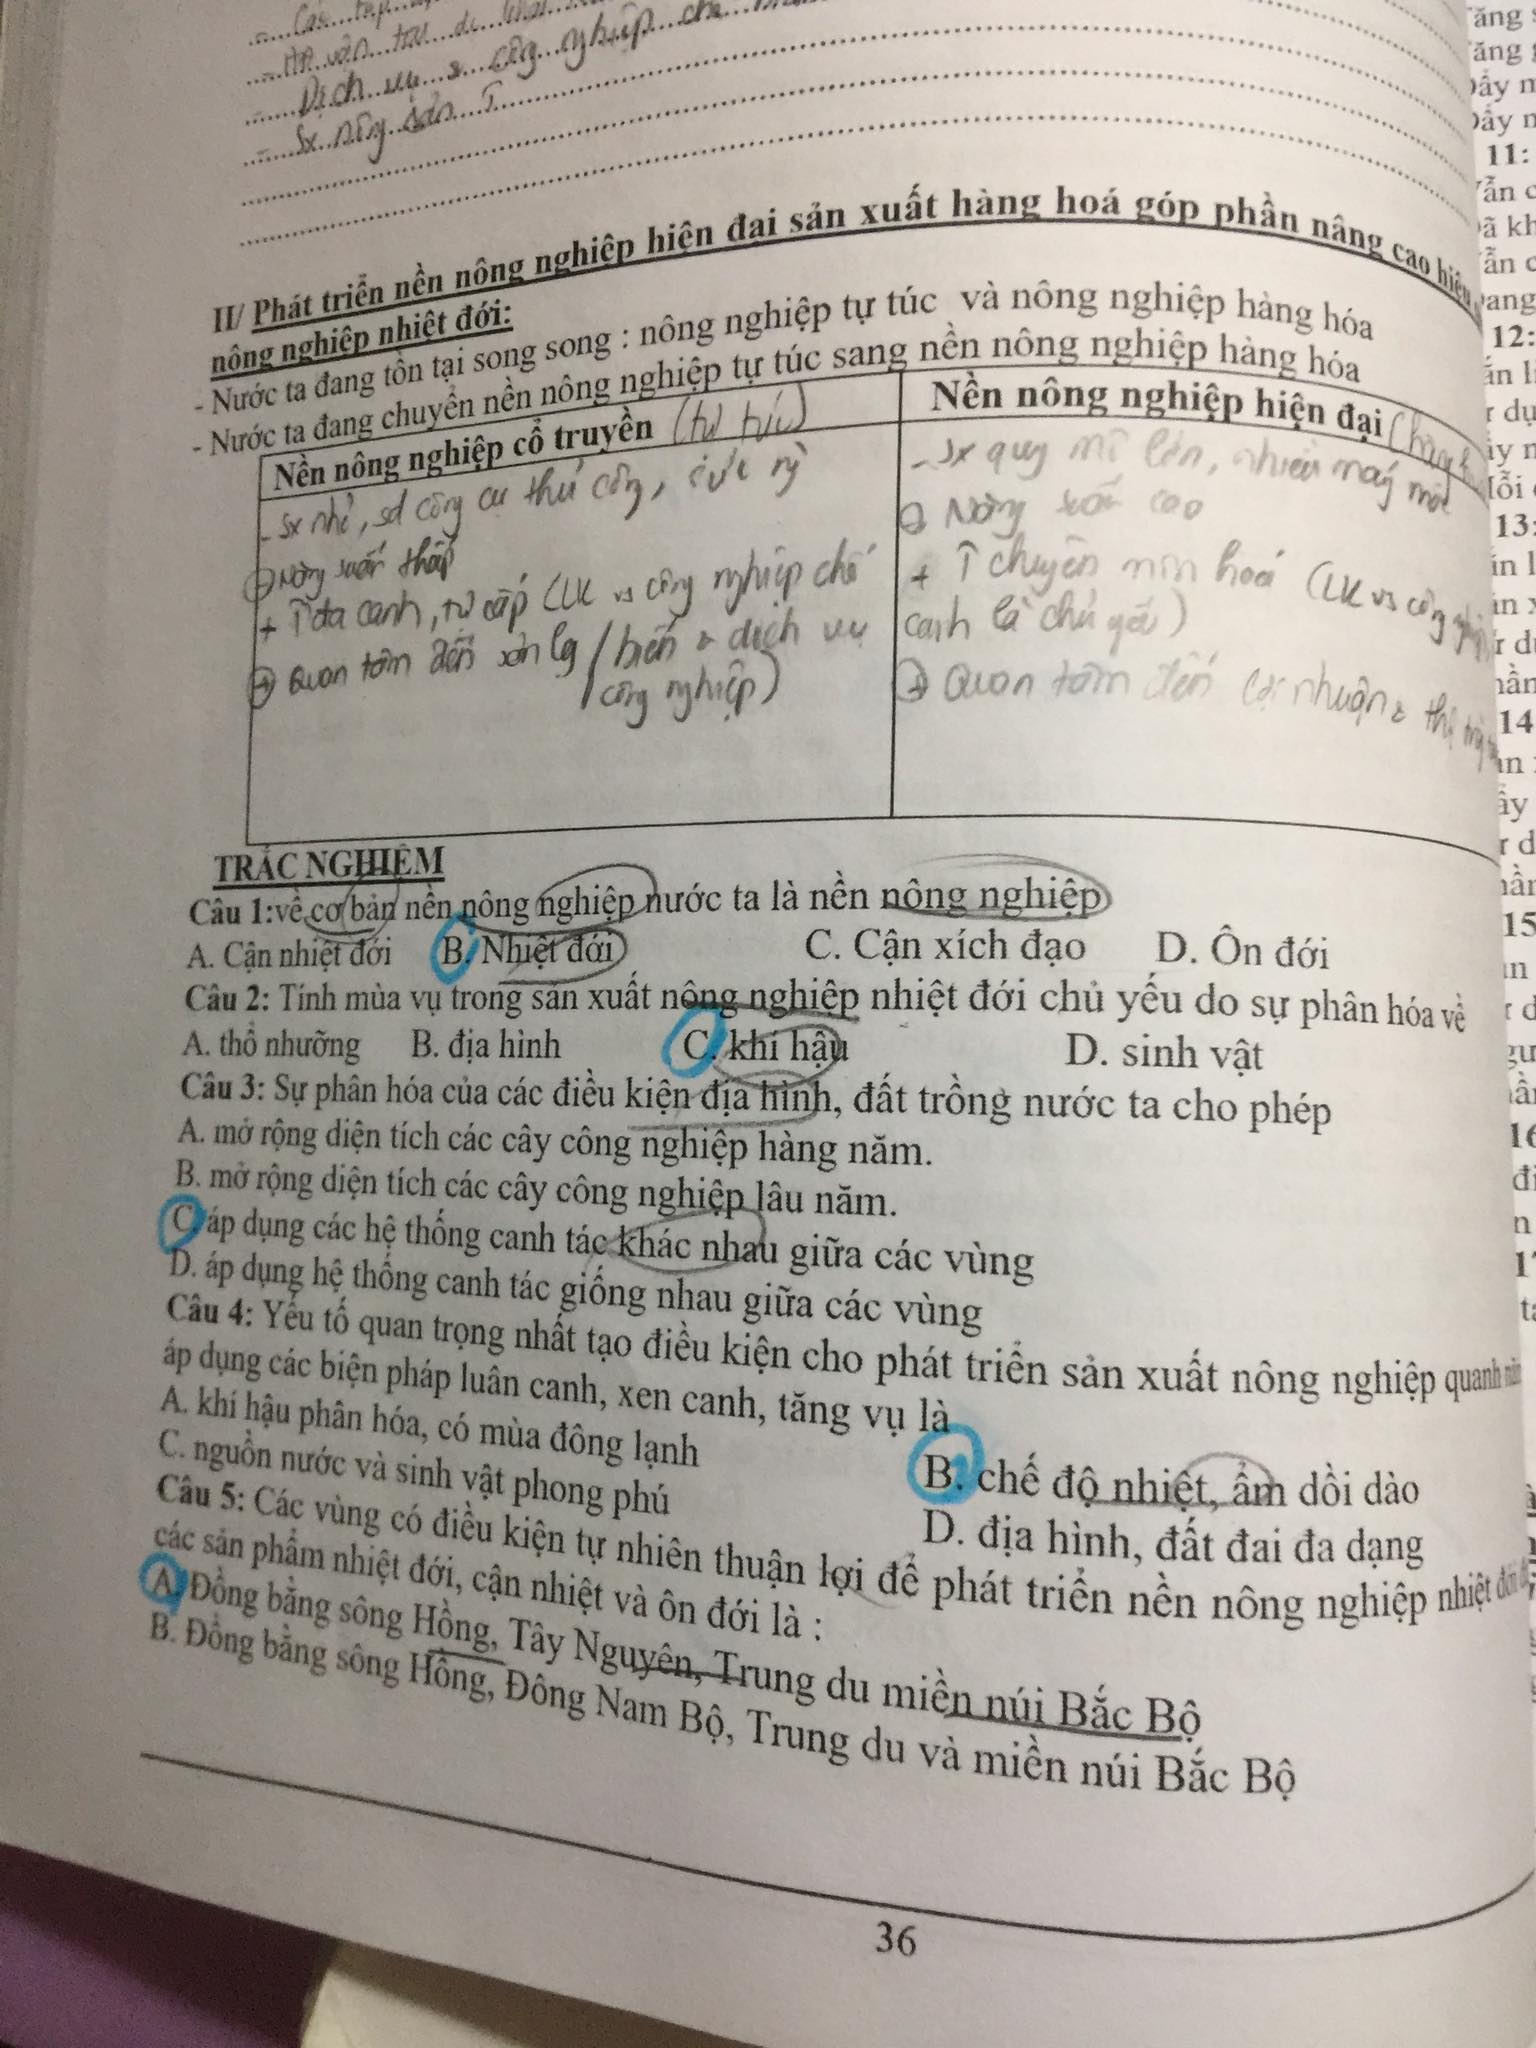 - Dịch vụ & công nghiệp chế
- Sx nông sản
II/ Phát triển nền nông nghiệp hiện đại sản xuất hàng hoá góp phần nâng cao hiệu
nông nghiệp nhiệt đới:
- Nước ta đang tồn tại song song : nông nghiệp tự túc và nông nghiệp hàng hóa
- Nước ta đang chuyển nền nông nghiệp tự túc sang nền nông nghiệp hàng hóa
Nền nông nghiệp cổ truyền (tự túc)
- Sx nhỏ, sd công cụ thủ công, sức
Năng suất thấp
+ đa canh, tự cấp (LK vs công nghiệp chế
biến & dịch vụ
công nghiệp)
Quan tâm đến sản lg
Nền nông nghiệp hiện đại
- Sx quy mô lớn, nhiều máy móc
Năng suất cao
+ chuyên môn hoá (LK vs công
canh là chủ yếu)
Quan tâm đến lợi nhuận &
TRẮC NGHIỆM
Câu 1:về cơ bản nền nông nghiệp nước ta là nền nông nghiệp
A. Cận nhiệt đới B. Nhiệt đới C. Cận xích đạo D. Ôn đới
Câu 2: Tính mùa vụ trong sản xuất nông nghiệp nhiệt đới chủ yếu do sự phân hóa về
A. thổ nhưỡng B. địa hình C. khí hậu D. sinh vật
Câu 3: Sự phân hóa của các điều kiện địa hình, đất trồng nước ta cho phép
A. mở rộng diện tích các cây công nghiệp hàng năm.
B. mở rộng diện tích các cây công nghiệp lâu năm.
C. áp dụng các hệ thống canh tác khác nhau giữa các vùng
D. áp dụng hệ thống canh tác giống nhau giữa các vùng
Câu 4: Yếu tố quan trọng nhất tạo điều kiện cho phát triển sản xuất nông nghiệp quanh
áp dụng các biện pháp luân canh, xen canh, tăng vụ là
A. khí hậu phân hóa, có mùa đông lạnh
B. chế độ nhiệt, ẩm dồi dào
C. nguồn nước và sinh vật phong phú
D. địa hình, đất đai đa dạng
Câu 5: Các vùng có điều kiện tự nhiên thuận lợi để phát triển nền nông nghiệp nhiệt
các sản phẩm nhiệt đới, cận nhiệt và ôn đới là :
A. Đồng bằng sông Hồng, Tây Nguyên, Trung du miền núi Bắc Bộ
B. Đồng bằng sông Hồng, Đông Nam Bộ, Trung du và miền núi Bắc Bộ
36
11:
12:
13:
14
15
16